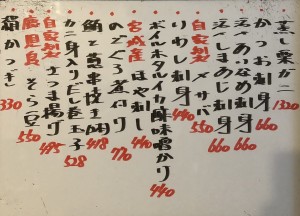 蒸し栗ガニ 1320
かつお刺身 660
活〆あいなめ刺身 660
活〆しまあじ刺身 660
自家製〆サバ 550
いわし刺身 440
ボイルホタルイカ酢味噌かり 440
宮城産ほや刺し 440
のどぐろ煮付り 770
鮪と煮串技王胡 418
カニ身入りだし巻玉子 528
自家製さつま揚げ 495
鹿児島そら豆 550
絹かつぎ 330